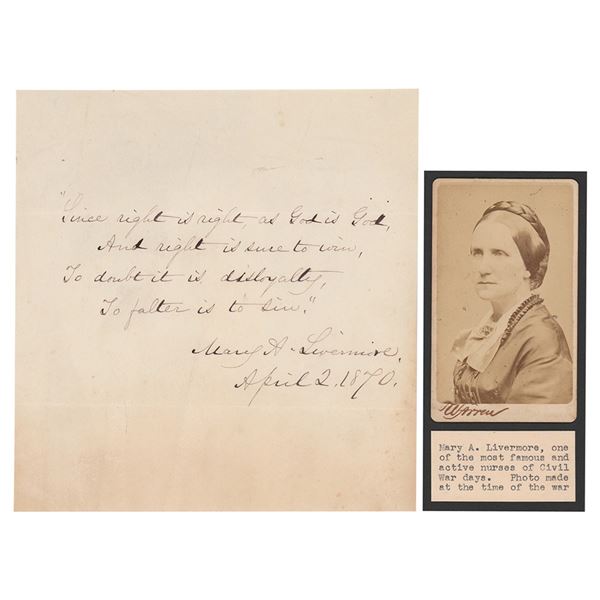 "Since right is right, as God is God,
And right is sure to win,
To doubt it is disloyalty,
To falter is to sin."
Mary A. Livermore.
April 2. 1870.
Warren
Mary A. Livermore, one
of the most famous and
active nurses of Civil
War days. Photo made
at the time of the war